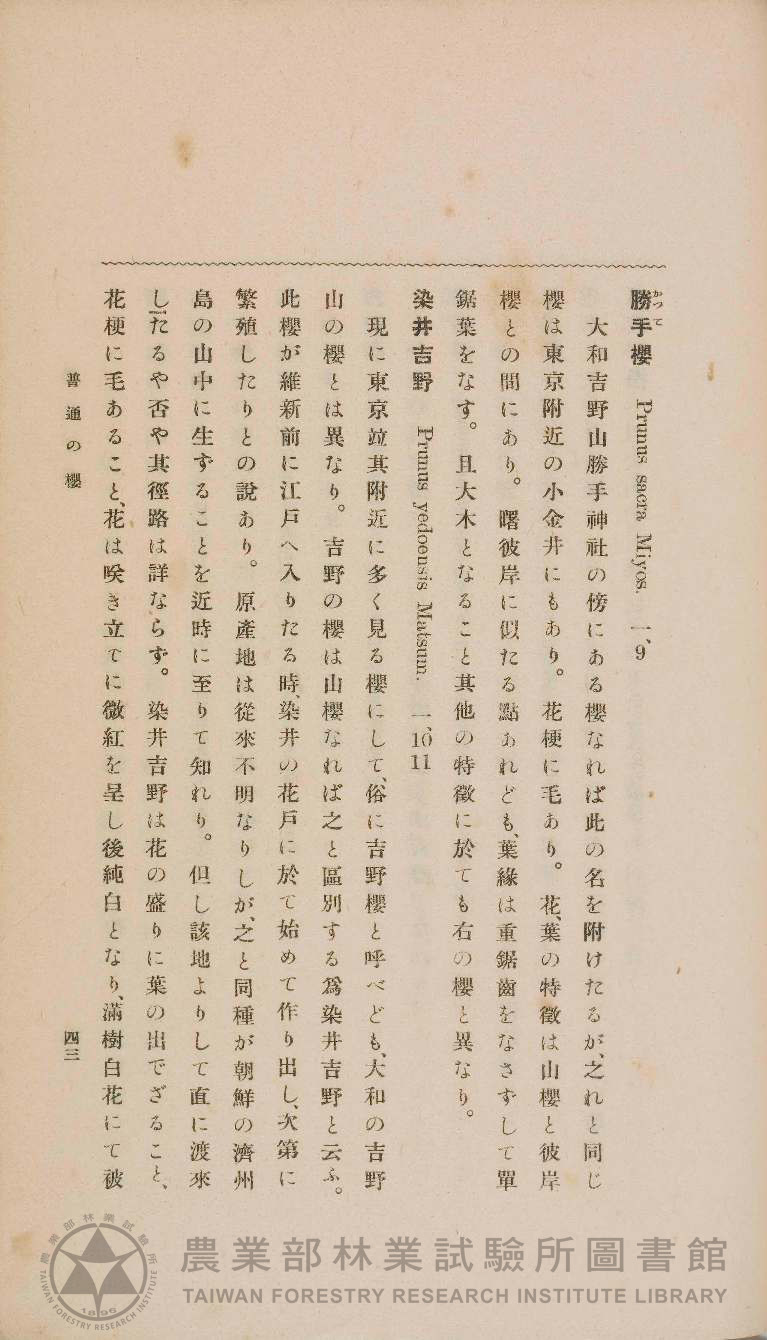 勝手櫻 Prunus sacra Miyos. 一、9
かつて
大和吉野山勝手神社の傍にある櫻なれば此の名を附けたるが、之れと同じ
櫻は東京附近の小金井にもあり。花梗に毛あり。花、葉の特徵は山櫻と彼岸
櫻との間にあり。曙彼岸に似たる點あれども、葉緣は重鋸齒をなさずして單
鋸葉をなす。且大木となること其他の特徵に於ても右の櫻と異なり。
染井吉野 Prunus yedoensis Matsum. 一、10 11
現に東京竝其附近に多く見る櫻にして、俗に吉野櫻と呼べども、大和の吉野
山の櫻とは異なり。吉野の櫻は山櫻なれば之と區別する爲染井吉野と云ふ。
此櫻が維新前に江戶へ入りたる時、染井の花戶に於て始めて作り出し、次第に
繁殖したりとの說あり。原產地は從來不明なりしが、之と同種が朝鮮の濟州
島の山中に生ずることを近時に至りて知れり。但し該地よりして直に渡來
したるや否や其徑路は詳ならず。染井吉野は花の盛りに葉の出でざること、
花梗に毛あること、花は咲き立てに微紅を呈し後純白となり、滿樹白花にて被
普通の櫻
四三
農業部林業試驗所圖書館
TAIWAN FORESTRY RESEARCH INSTITUTE LIBRARY
農業部林業試驗所
TAIWAN FORESTRY RESEARCH INSTITUTE
1896